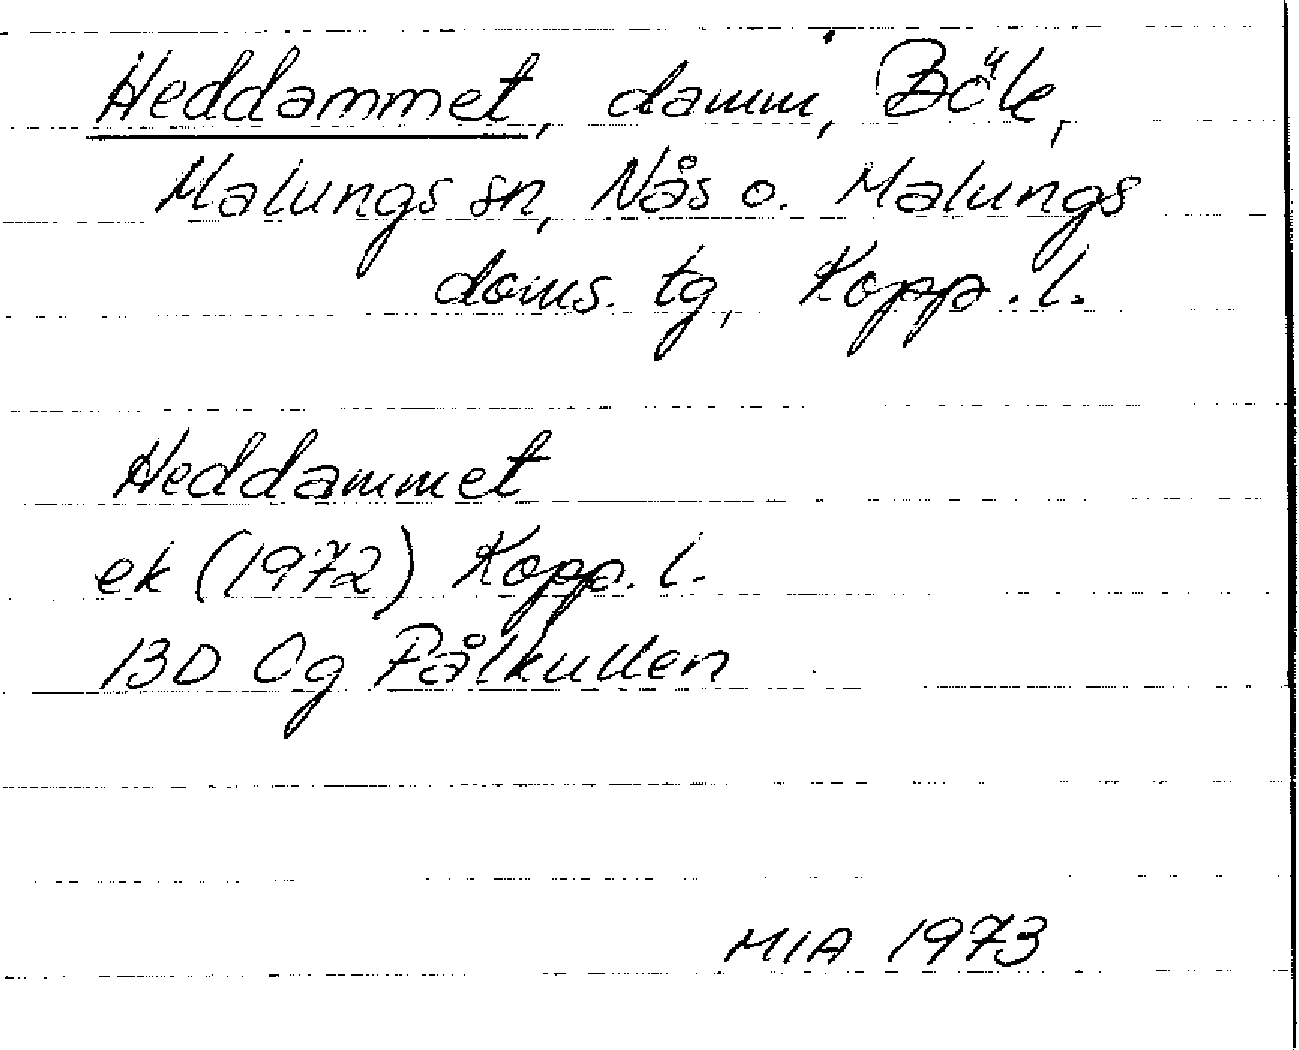 Heddammet, damm, Böle,
Malungs sn, Nås o. Malungs
doms. tg, Kopp. l.
Heddammet
ek (1972) Kopp. l.
13D Cg Pålkullen
MIA 1973